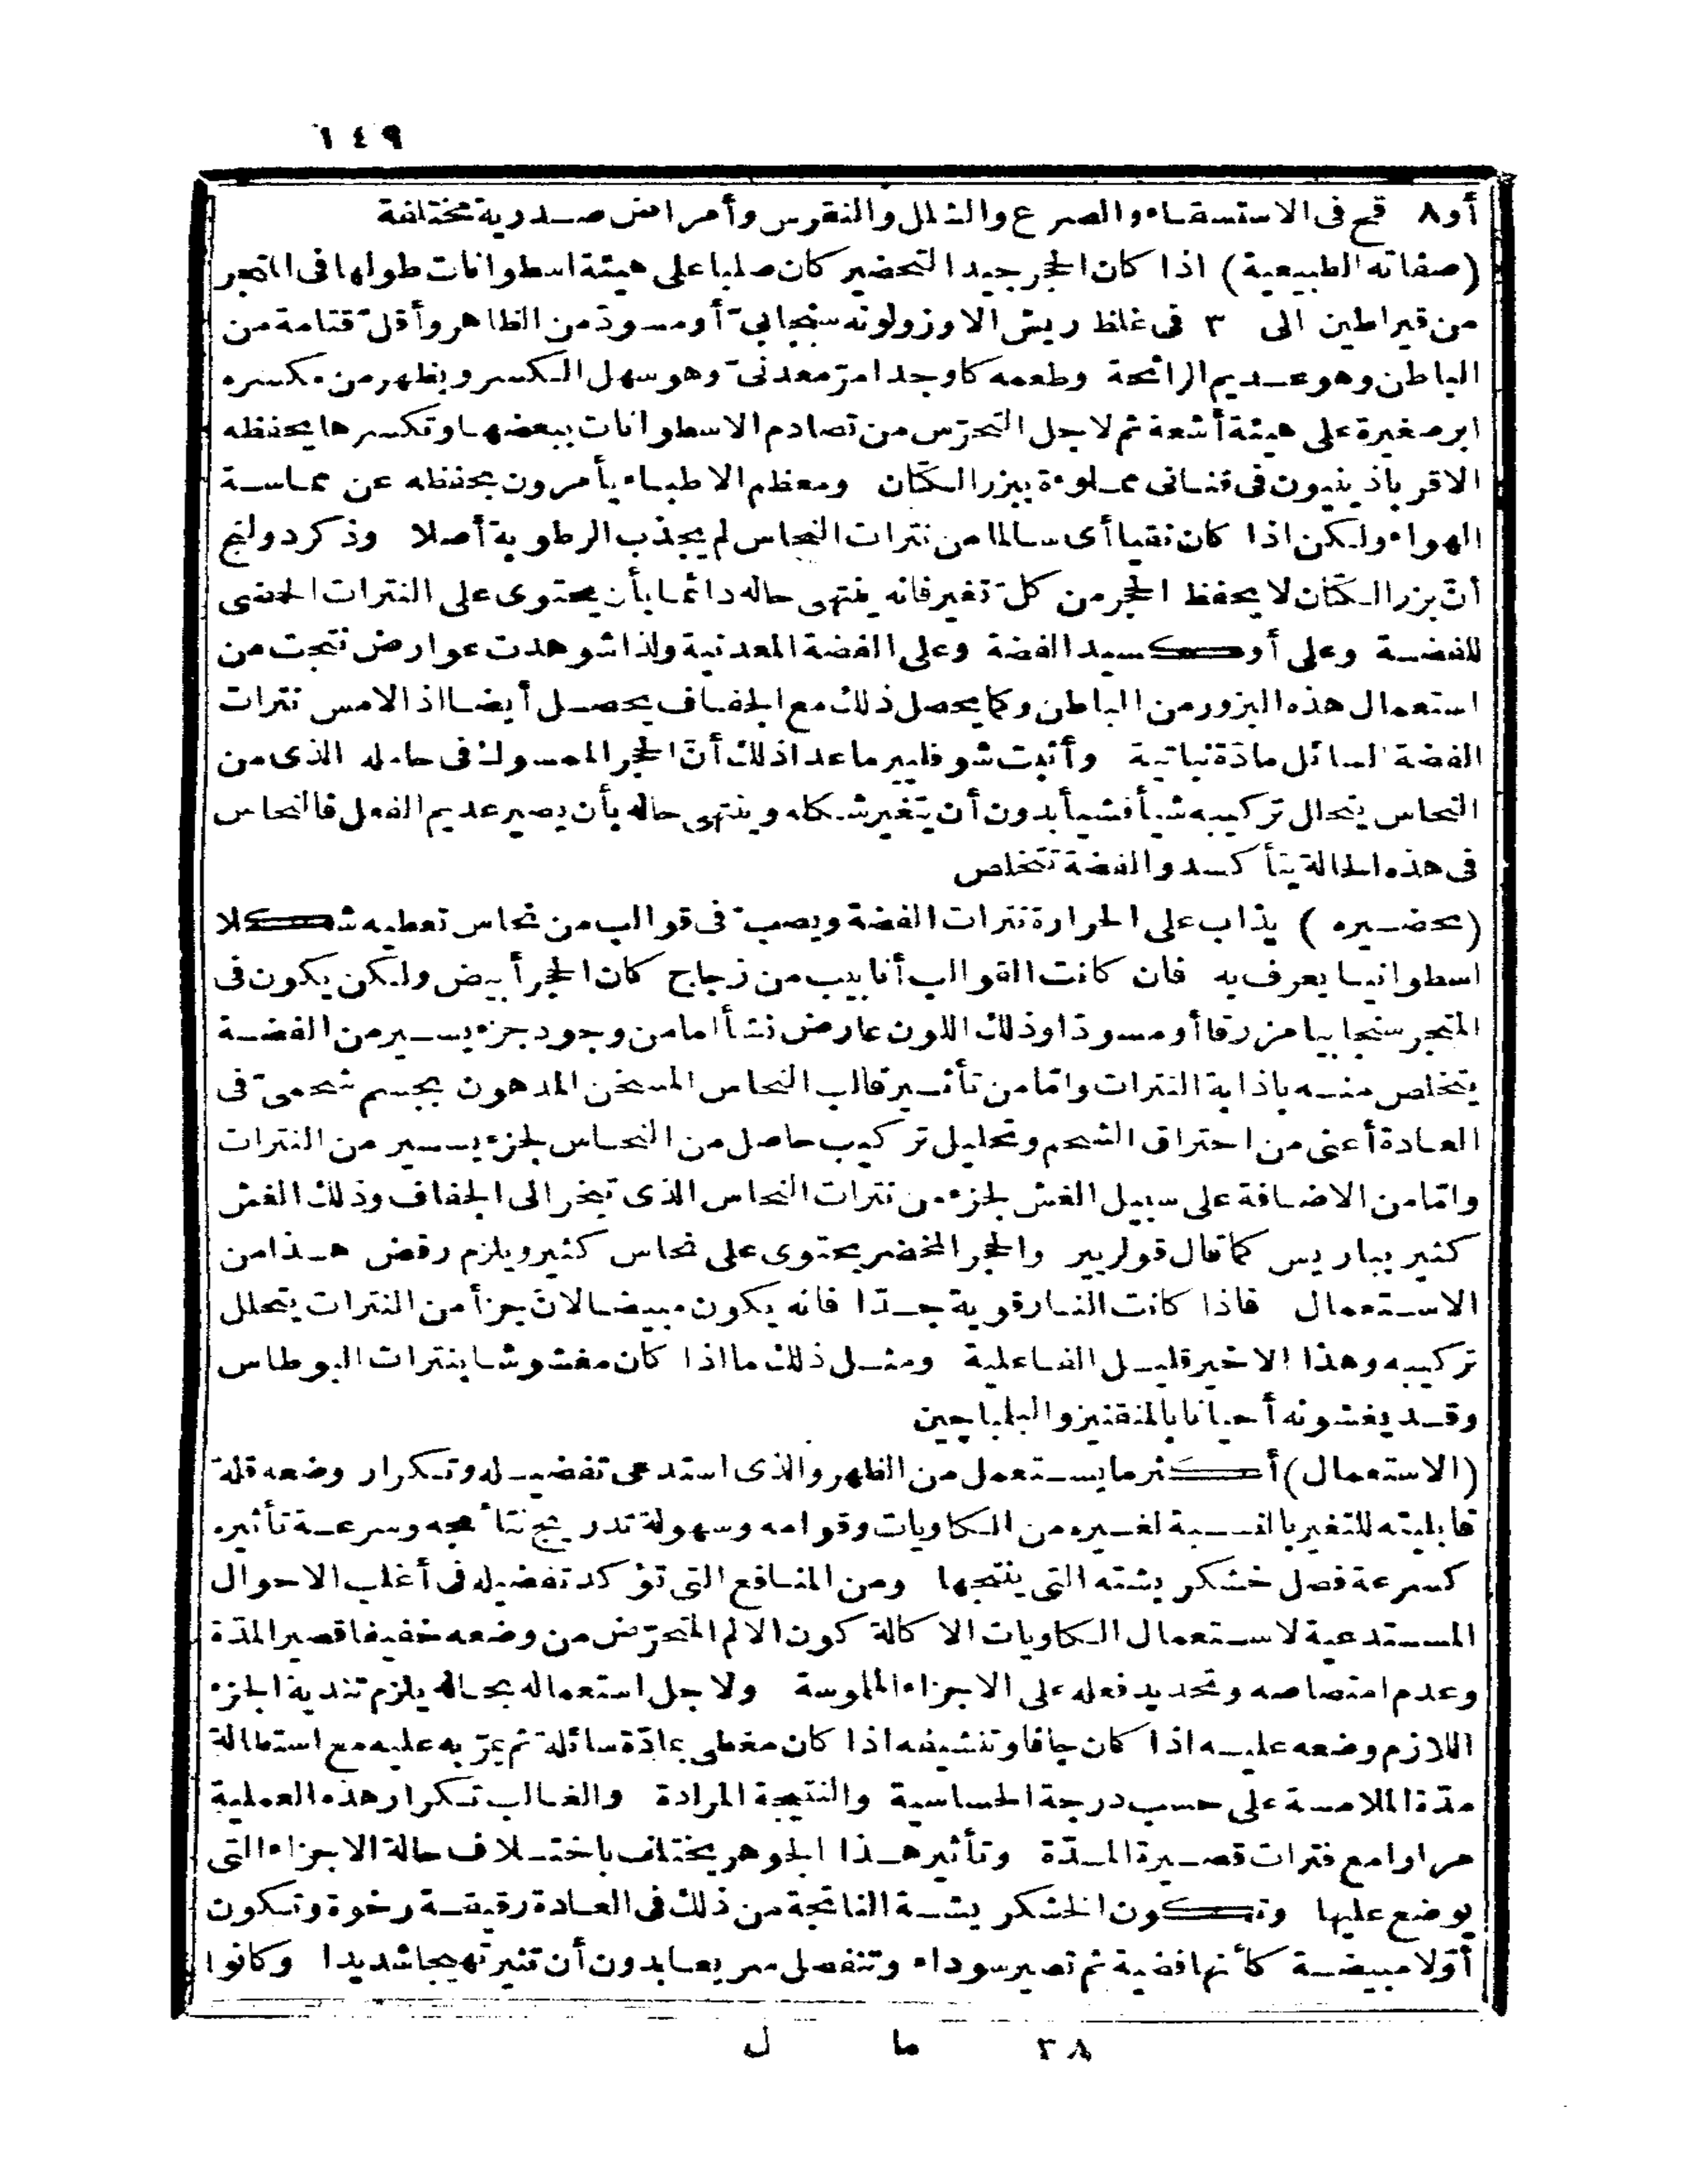 ١٤٩
أو ٨ قمح فى الاستسقاء والصرع والشلل والنقرس وأمراض صدرية مختلفة
(صفاته الطبيعية) اذا كان الحجر جيد التحضير كان صلبا على هيئة اسطوانات طولها فى المتجر
من قيراطين الى ٣ فى غلظ ريش الاوز ولونه سنجابىّ أو مسودّ من الظاهر وأقلّ قتامة من
الباطن وهو عديم الرائحة وطعمه كاو جدا مرّ معدنىّ وهو سهل الكسر ويظهر من مكسره
ابر صغيرة على هيئة أشعة ثم لاجل التحرّس من تصادم الاسطوانات ببعضها وتكسرها يحفظه
الاقرباذينيون فى قنانى مملوءة ببزر الكتان ومعظم الاطباء يأمرون بحفظه عن مماسة
الهواء ولكن اذا كان نقيا أى سالما من نترات النحاس لم يجذب الرطوبة أصلا وذكر دولنج
أنّ بزر الكتان لا يحفظ الحجر من كلّ تغير فانه ينتهى حاله دائما بأن يحتوى على النترات الحمضى
للفضة وعلى أوكسيد الفضة وعلى الفضة المعدنية ولذا شوهدت عوارض نتجت من
استعمال هذه البزور من الباطن وكما يحصل ذلك مع الجفاف يحصل أيضا اذا لامس نترات
الفضة السائل مادّة نباتية وأثبت شوفليير ماعدا ذلك أنّ الحجر الممسوك فى حامله الذى من
النحاس ينحال تركيبه شيأ فشيأ بدون أن يتغير شكله وينتهى حاله بأن يصير عديم الفعل فالنحاس
فى هذه الحالة يتأكسد والفضة تتخلص
(تحضيره) يذاب على الحرارة نترات الفضة ويصبّ فى قوالب من نحاس تعطيه شكلا
اسطوانيا يعرف به فان كانت القوالب أنابيب من زجاج كان الحجر أبيض ولكن يكون فى
المتجر سنجابيا مزرقا أو مسودّا وذلك اللون عارض نشأ امامن وجود جزء يسير من الفضة
يتخلص منه باذابة النترات وامّا من تأثير قالب النحاس المسخن المدهون بجسم شحمىّ فى
العادة أعنى من احتراق الشحم وتحليل تركيب حاصل من النحاس لجزء يسير من النترات
وامّا من الاضافة على سبيل الغش لجزء من نترات النحاس الذى تبخر الى الجفاف وذلك الغش
كثير بباريس كما قال قولريير والحجر المخضر يحتوى على نحاس كثير ويلزم رفض هذا من
الاستعمال فاذا كانت النار قوية جدّا فانه يكون مبيضا لانّ جزأ من النترات يتحلل
تركيبه وهذا الاخير قليل الفاعلية ومثل ذلك ما اذا كان مغشوشا بنترات البوطاس
وقد يغشونه أحيانا بالمنقنيز والبلباجين
(الاستعمال) أكثر ما يستعمل من الظاهر والذى استدعى تفضيله وتكرار وضعه قلة
قابليته للتغير بالنسبة لغيره من الكاويات وقوامه وسهولة تدريج نتائجه وسرعة تأثيره
كسرعة فصل خشكريشته التى ينتجها ومن المنافع التى تؤكد تفضيله فى أغلب الاحوال
المستدعية لاستعمال الكاويات الاكالة كون الالم المتحرّض من وضعه خفيفا قصير المدّة
وعدم امتصاصه وتحديد فعله على الاجزاء الملموسة ولاجل استعماله بحاله يلزم تندية الجزء
اللازم وضعه عليه اذا كان جافا وتنشيفه اذا كان مغطى بمادّة سائلة ثم يمرّ به عليه مع استطالة
مدّة الملامسة على حسب درجة الحساسية والنتيجة المرادة والغالب تكرار هذه العملية
مرارا مع فترات قصيرة المدّة وتأثير هذا الجوهر يختلف باختلاف حالة الاجزاء التى
يوضع عليها وتكون الخشكريشة الناتجة من ذلك فى العادة رقيقة رخوة وتكون
أوّلا مبيضة كأنها فضية ثم تصير سوداء وتنفصل سريعا بدون أن تثير تهيجا شديدا وكانوا
٣٨ ما ل